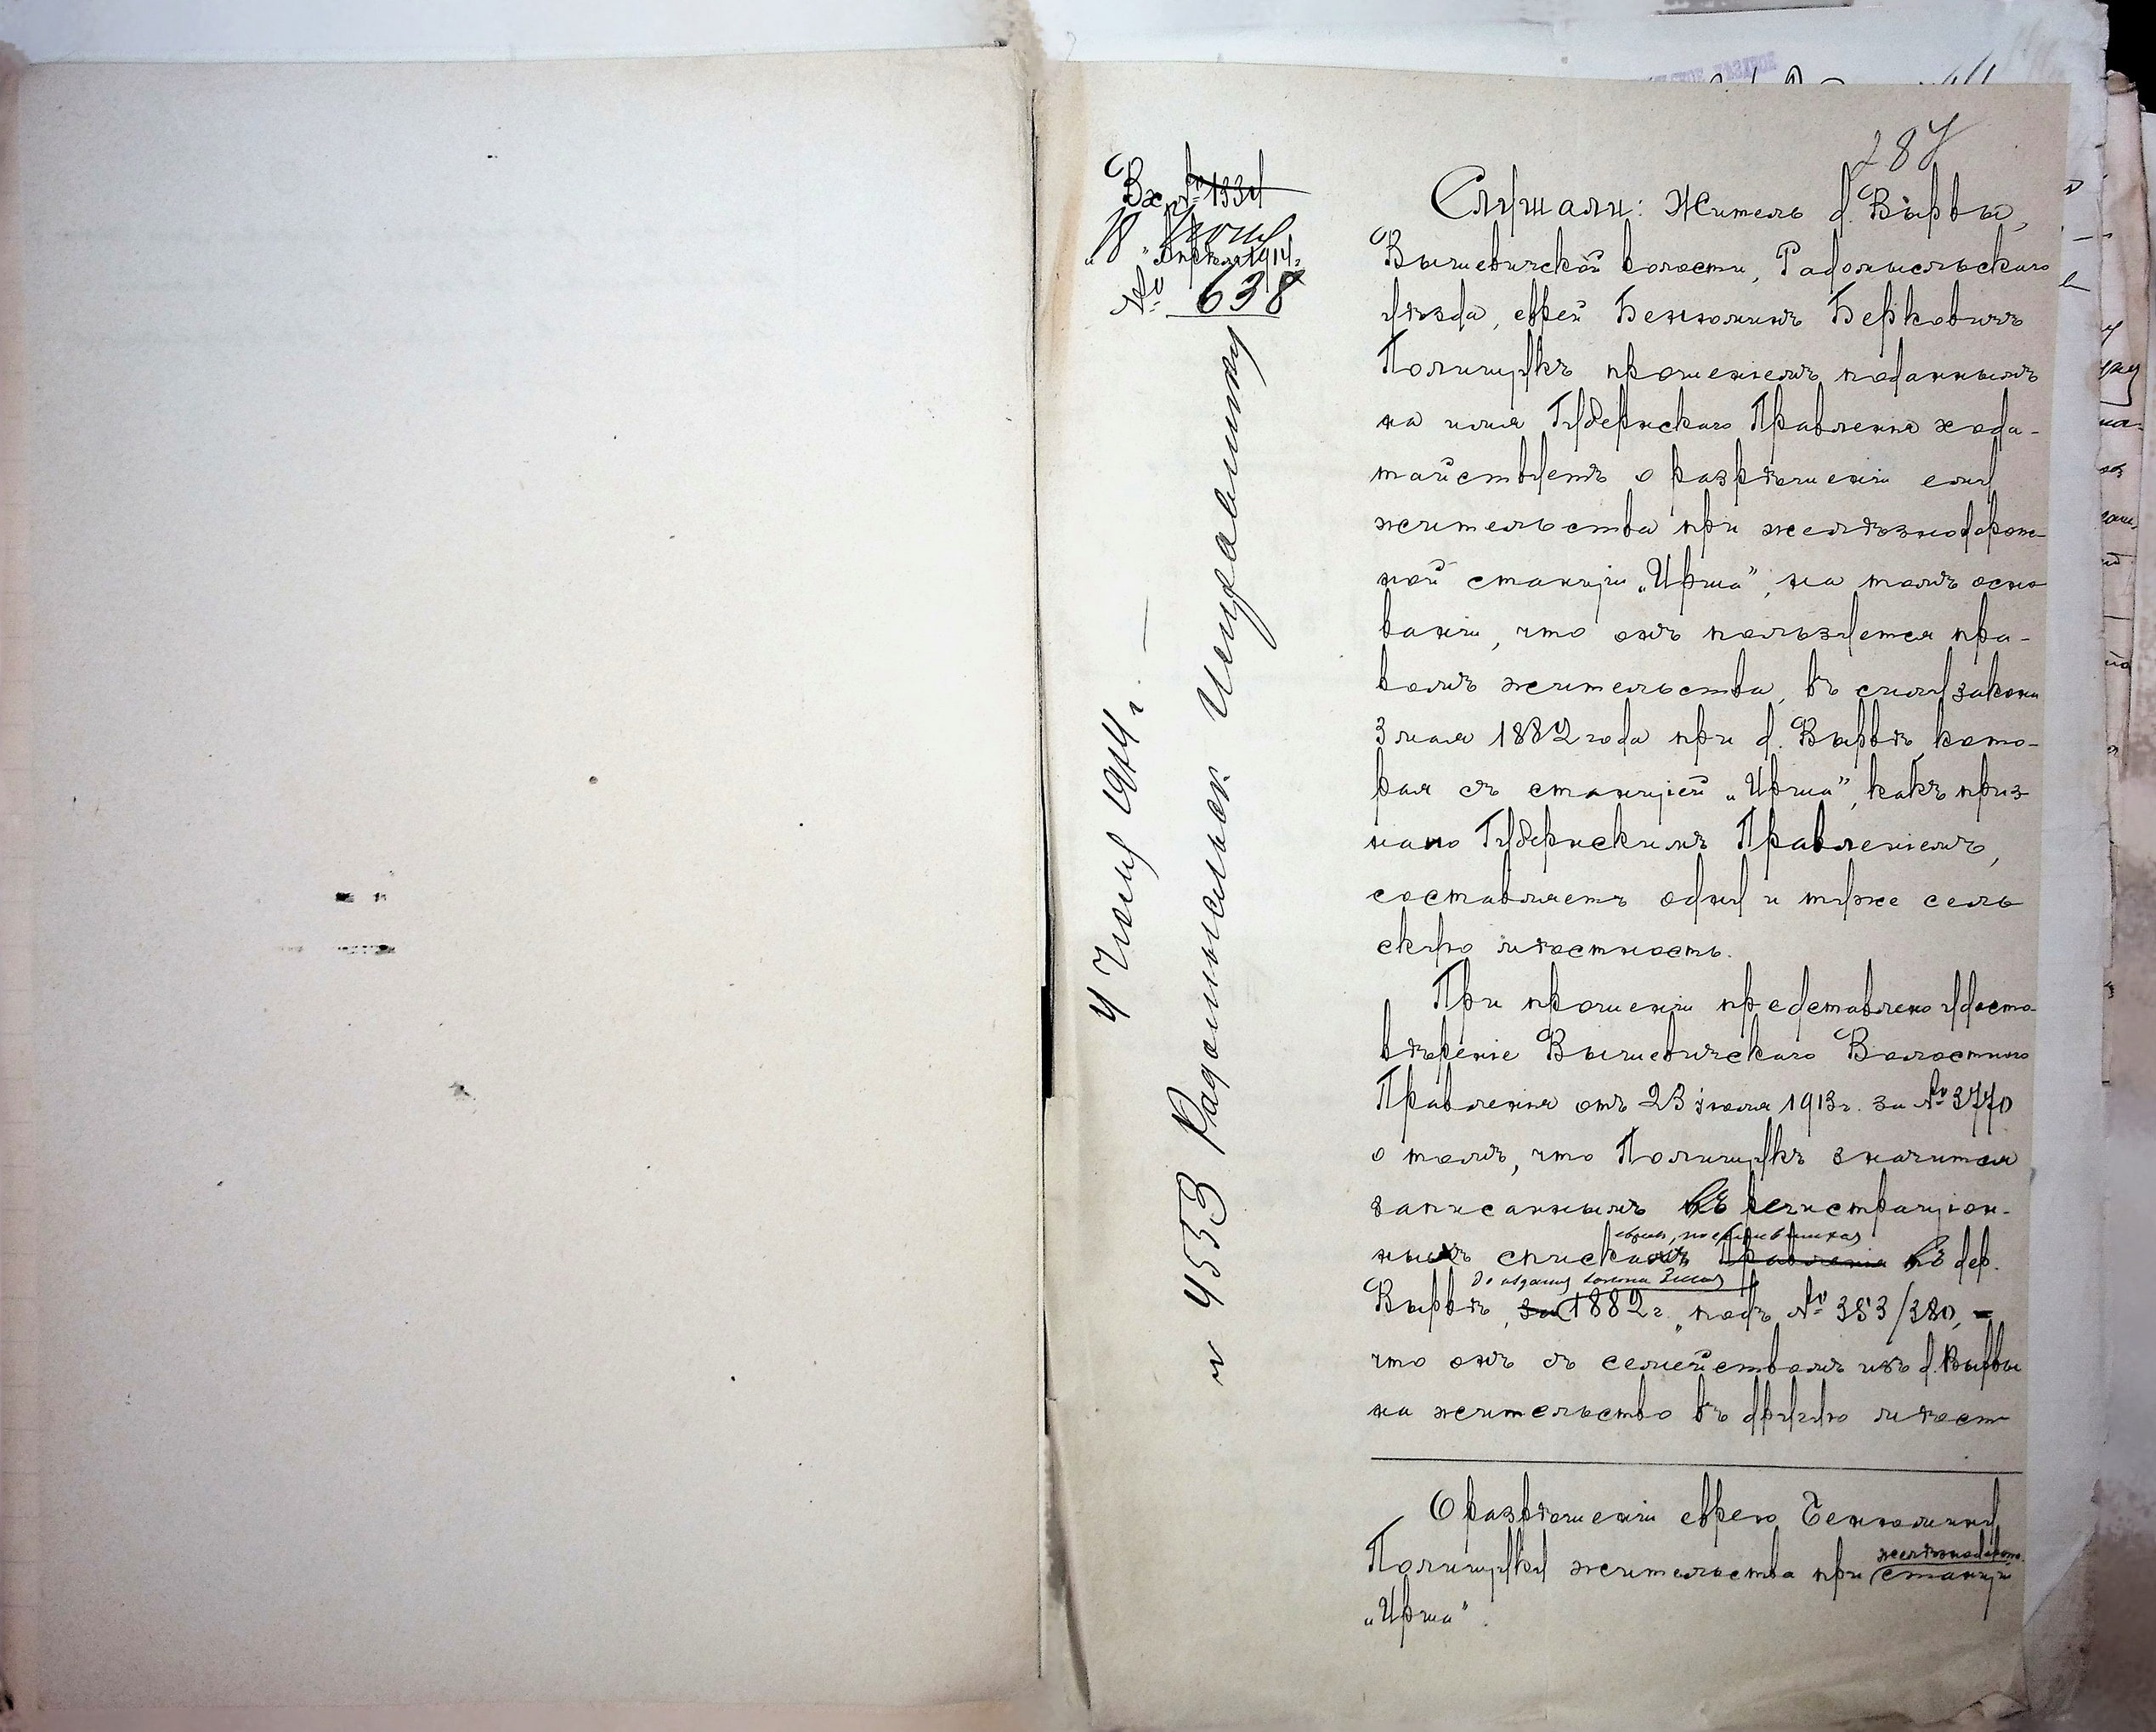 287
Вх. № 1334
18 Апреля 1914 г.
№ 638
4 Іюня 1914 г.
№ 4553 Радомысльск. Исправнику
Слушали: Житель д. Вырвы,
Вышевичской волости, Радомысльскаго
уѣзда, еврей Беньюминъ Берковичъ
Полищукъ прошеніемъ поданнымъ
на имя Губернскаго Правленія хода-
тайствуетъ о разрѣшеніи ему
жительства при желѣзнодорож-
ной станціи „Ирша", на томъ осно
ваніи, что онъ пользуется пра-
вомъ жительства, въ силу закона
3 мая 1882 года при д. Вырвѣ, кото-
рая съ станціей „Ирша", какъ приз
нано Губернскимъ Правленіемъ,
составляетъ одну и туже сель
скую мѣстность.
При прошеніи представлено удосто
вѣреніе Вышевичскаго Волостного
Правленія отъ 23 іюля 1913 г. за № 3770
о томъ, что Полищукъ значится
записаннымъ въ регистраціон-
евреевъ, поселившихся
ныхъ спискахъ Правленія въ дер.
до изданія закона 3 мая
Вырвѣ, за 1882 г. подъ № 353/380, -
что онъ съ семействомъ изъ д. Вырвы
на жительство въ другую мѣст
О разрѣшеніи еврею Беньюмину
желѣзнодорож.
Полищуку жительства при станціи
„Ирша".